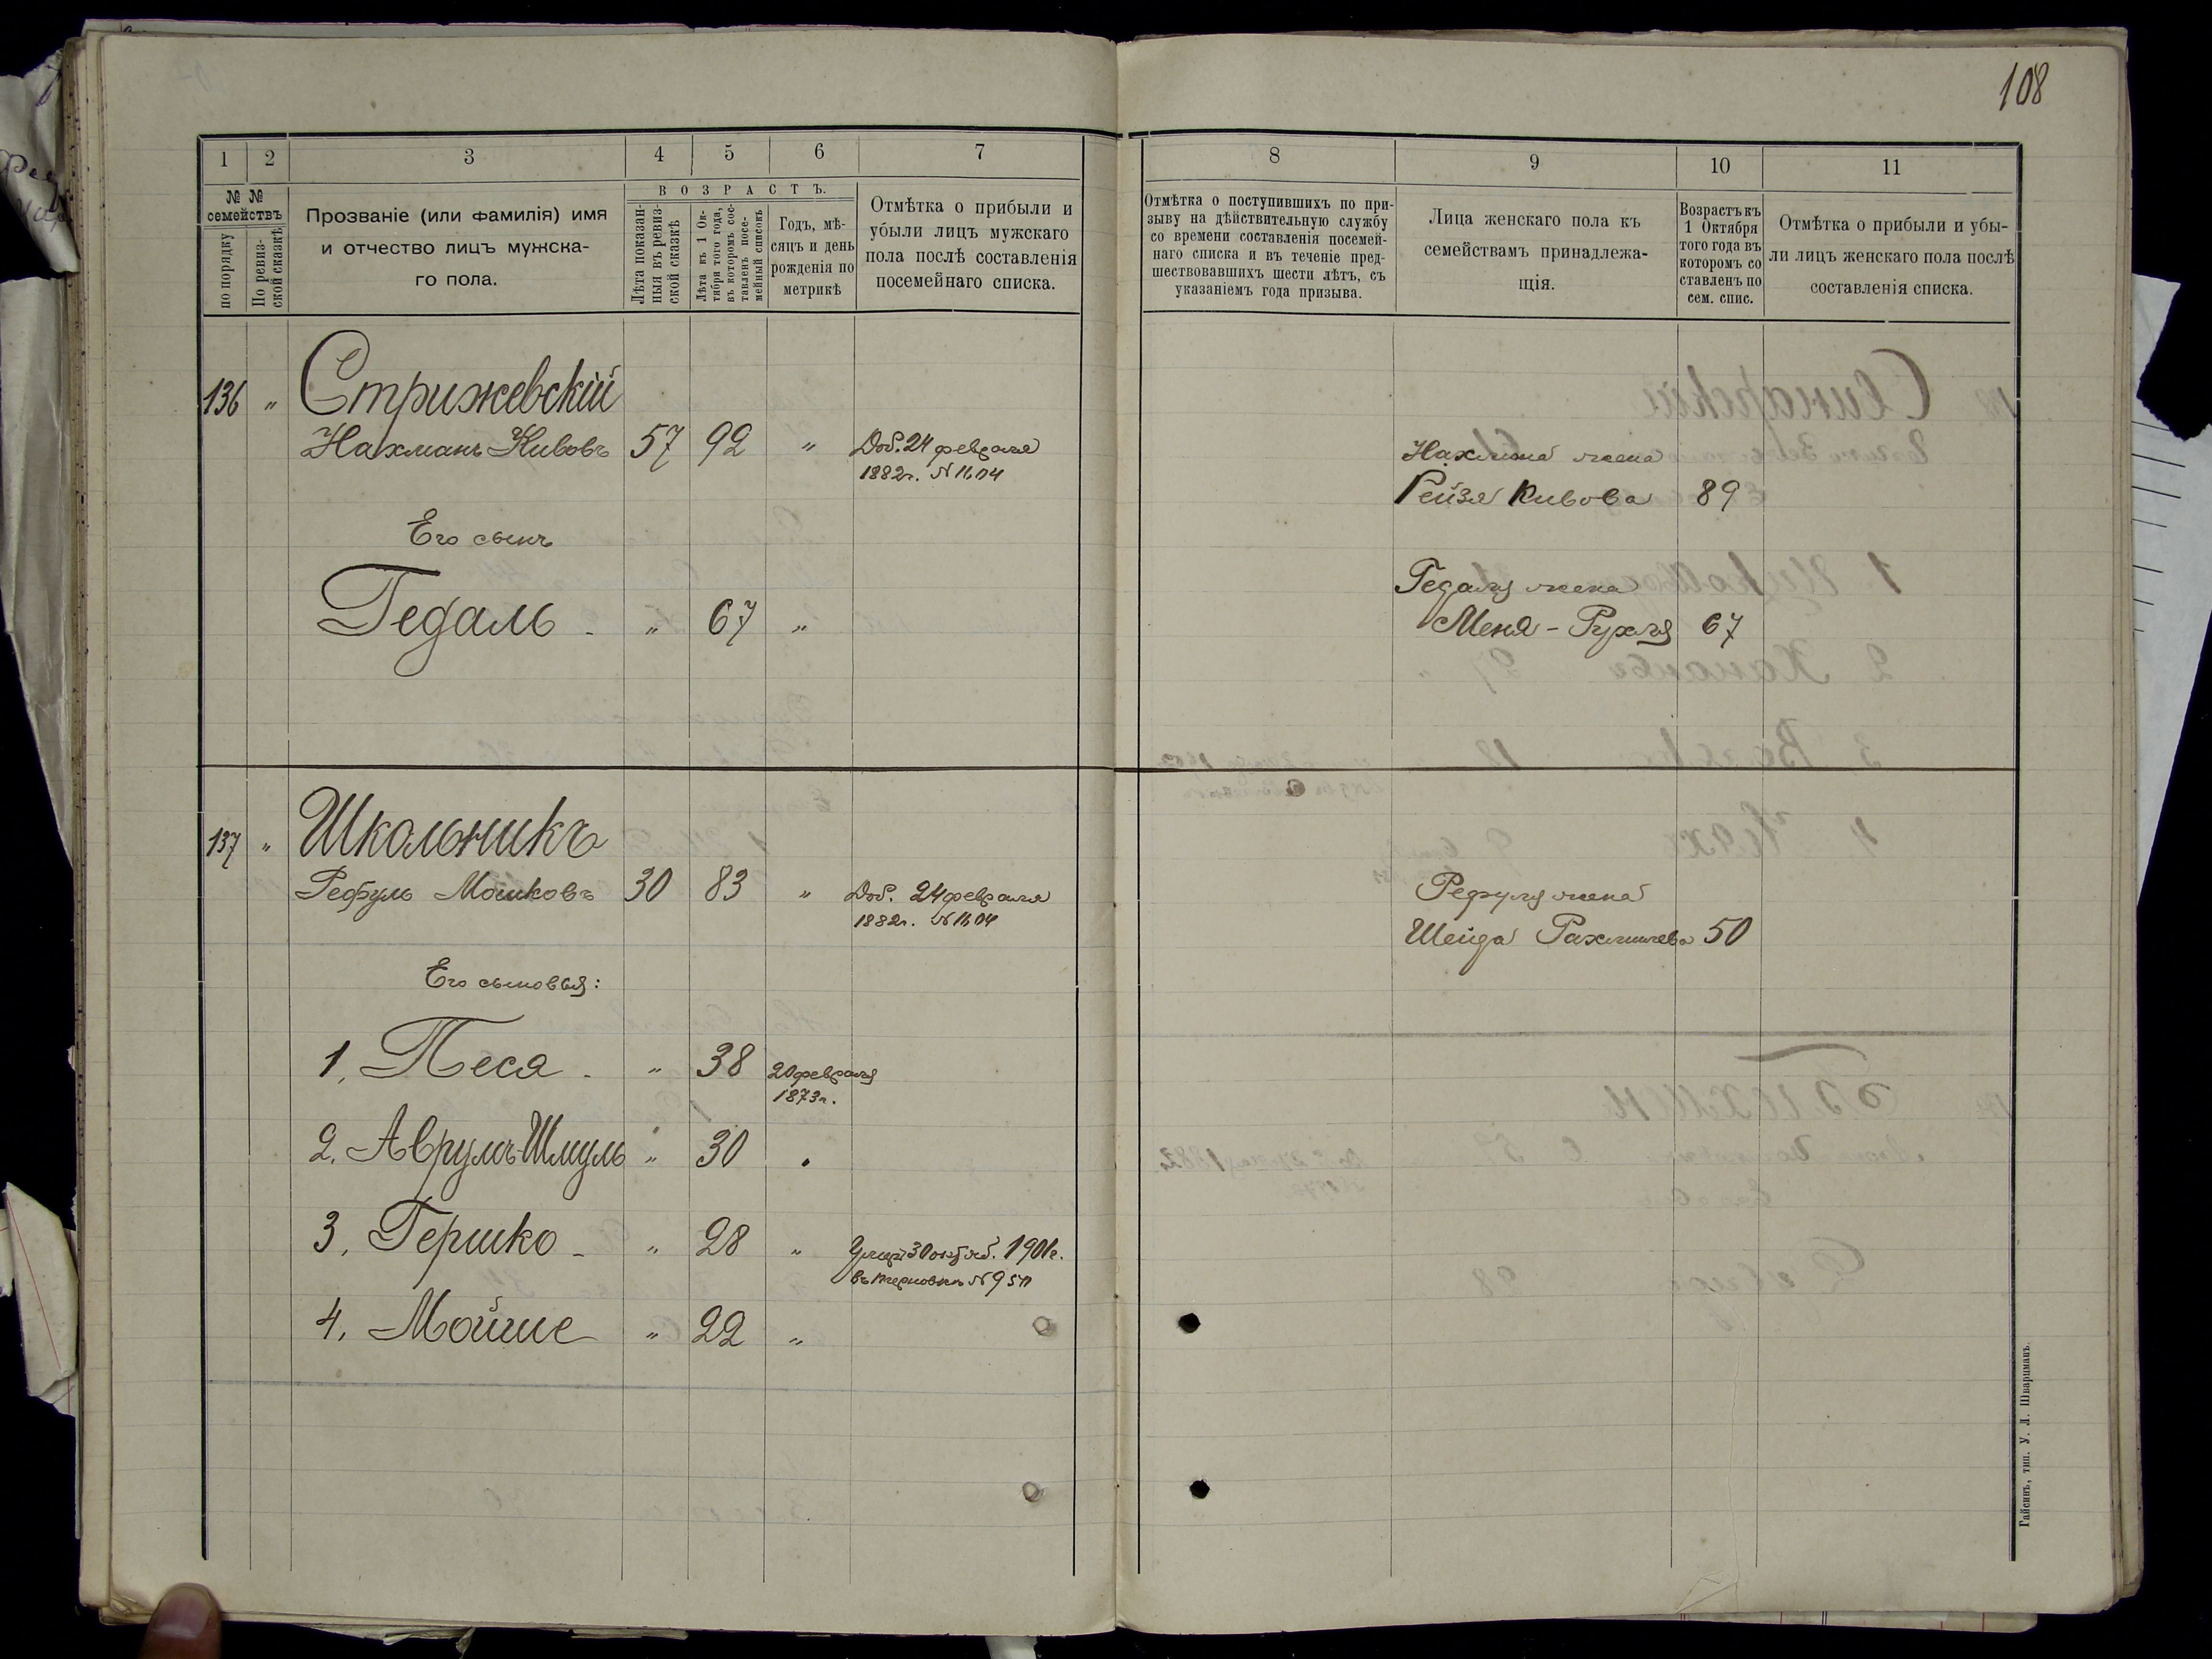 108
1
2
3
4
5
6
7
№ №
семействъ
по порядку
По ревиз-
ской сказкѣ
Прозваніе (или фамилія) имя
и отчество лицъ мужска-
го пола.
ВОЗРАСТЪ.
Лѣта показан-
ныя въ ревиз-
ской сказкѣ
Лѣта къ 1 Ок-
тября того года,
въ которомъ сос-
тавленъ посе-
мейный списокъ
Годъ, мѣ-
сяцъ и день
рожденія по
метрикѣ
Отмѣтка о прибыли и
убыли лицъ мужскаго
пола послѣ составленія
посемейнаго списка.
136 " Стрижевскій
Нахманъ Кивовъ 57 92 " Доб. 24 февраля
1882г. № 1104
Его сынъ
Гедаль - " 67 "
137 " Школьникъ
Рефуль Мошковъ 30 83 " Доб. 24 февраля
1882г. № 1104
Его сыновья:
1, Песя - " 38 20 февраля
1873г.
2. Аврумъ-Шмуль " 30
3, Гершко - " 28 " 1901г.
4, Мойше " 22 "
8
9
10
11
Отмѣтка о поступившихъ по при-
зыву на дѣйствительную службу
со времени составленія посемей-
наго списка и въ теченіе пред-
шествовавшихъ шести лѣтъ, съ
указаніемъ года призыва.
Лица женскаго пола къ
семействамъ принадлежа-
щія.
Возрастъ къ
1 Октября
того года въ
которомъ со
ставленъ по
сем. спис.
Отмѣтка о прибыли и убы-
ли лицъ женскаго пола послѣ
составленія списка.
Нахмана жена
Рейзя Кивова 89
Гедаля жена
Меня-Рухля 67
Рефуля жена
Шейда Рахмилева 50
Гайсинъ, тип. У. Л. Шварцманъ.